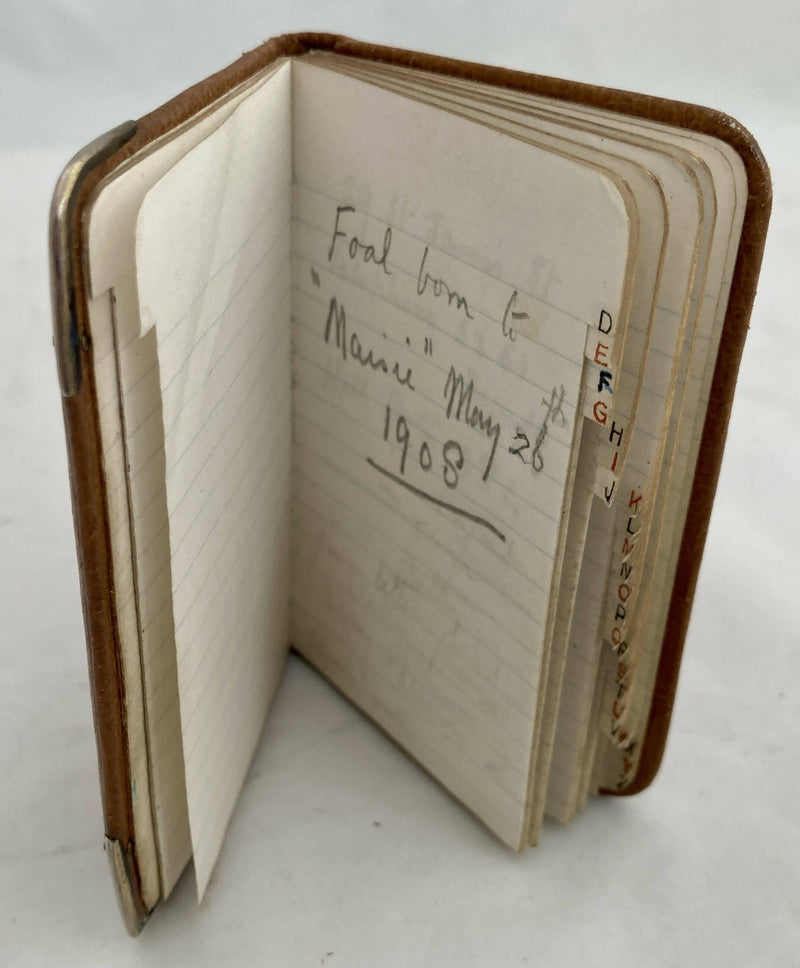 Foal born to
"Maisie" May 26th
1908
D
E
F
G
H
I
J
K
L
M
N
O
P
Q
R
S